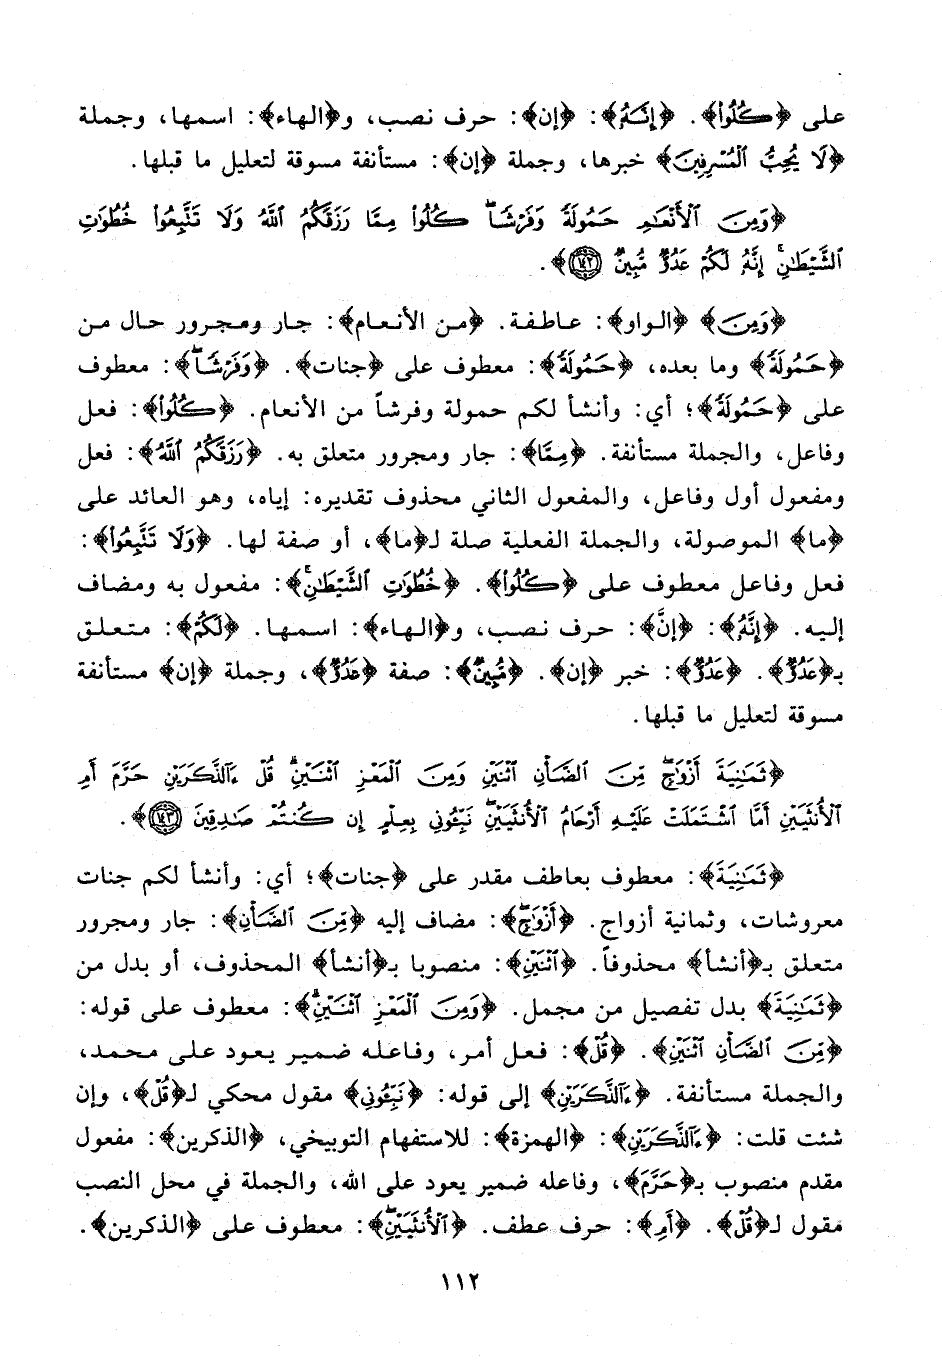 على ﴿كُلُوا﴾. ﴿إِنَّهُ﴾: ﴿إن﴾: حرف نصب، و﴿الهاء﴾: اسمها، وجملة
﴿لَا يُحِبُّ الْمُسْرِفِينَ﴾ خبرها، وجملة ﴿إن﴾: مستأنفة مسوقة لتعليل ما قبلها.
﴿وَمِنَ الْأَنْعَامِ حَمُولَةً وَفَرْشًا ۚ كُلُوا مِمَّا رَزَقَكُمُ اللَّهُ وَلَا تَتَّبِعُوا خُطُوَاتِ
الشَّيْطَانِ ۚ إِنَّهُ لَكُمْ عَدُوٌّ مُبِينٌ ١٤٢﴾.
﴿وَمِنَ﴾ ﴿الواو﴾: عاطفة. ﴿من الأنعام﴾: جار ومجرور حال من
﴿حَمُولَةً﴾ وما بعده، ﴿حَمُولَةً﴾: معطوف على ﴿جنات﴾. ﴿وَفَرْشًا ۚ﴾: معطوف
على ﴿حَمُولَةً﴾؛ أي: وأنشأ لكم حمولة وفرشاً من الأنعام. ﴿كُلُوا﴾: فعل
وفاعل، والجملة مستأنفة. ﴿مِمَّا﴾: جار ومجرور متعلق به. ﴿رَزَقَكُمُ اللَّهُ﴾: فعل
ومفعول أول وفاعل، والمفعول الثاني محذوف تقديره: إياه، وهو العائد على
﴿ما﴾ الموصولة، والجملة الفعلية صلة لـ﴿ما﴾، أو صفة لها. ﴿وَلَا تَتَّبِعُوا﴾:
فعل وفاعل معطوف على ﴿كُلُوا﴾. ﴿خُطُوَاتِ الشَّيْطَانِ ۚ﴾: مفعول به ومضاف
إليه. ﴿إِنَّهُ﴾: ﴿إنَّ﴾: حرف نصب، و﴿الهاء﴾: اسمها. ﴿لَكُمْ﴾: متعلق
بـ﴿عَدُوٌّ﴾. ﴿عَدُوٌّ﴾: خبر ﴿إن﴾. ﴿مُبِينٌ﴾: صفة ﴿عَدُوٌّ﴾، وجملة ﴿إن﴾ مستأنفة
مسوقة لتعليل ما قبلها.
﴿ثَمَانِيَةَ أَزْوَاجٍ ۖ مِنَ الضَّأْنِ اثْنَيْنِ وَمِنَ الْمَعْزِ اثْنَيْنِ ۗ قُلْ ءَالذَّكَرَيْنِ حَرَّمَ أَمِ
الْأُنْثَيَيْنِ أَمَّا اشْتَمَلَتْ عَلَيْهِ أَرْحَامُ الْأُنْثَيَيْنِ ۖ نَبِّئُونِي بِعِلْمٍ إِنْ كُنْتُمْ صَادِقِينَ ١٤٣﴾.
﴿ثَمَانِيَةَ﴾: معطوف بعاطف مقدر على ﴿جنات﴾؛ أي: وأنشأ لكم جنات
معروشات، وثمانية أزواج. ﴿أَزْوَاجٍ ۖ﴾: مضاف إليه ﴿مِنَ الضَّأْنِ﴾: جار ومجرور
متعلق بـ﴿أنشأ﴾ محذوفاً. ﴿اثْنَيْنِ﴾: منصوبا بـ﴿أنشأ﴾ المحذوف، أو بدل من
﴿ثَمَانِيَةَ﴾ بدل تفصيل من مجمل. ﴿وَمِنَ الْمَعْزِ اثْنَيْنِ ۗ﴾: معطوف على قوله:
﴿مِنَ الضَّأْنِ اثْنَيْنِ﴾. ﴿قُلْ﴾: فعل أمر، وفاعله ضمير يعود على محمد،
والجملة مستأنفة. ﴿ءَالذَّكَرَيْنِ﴾ إلى قوله: ﴿نَبِّئُونِي﴾ مقول محكي لـ﴿قُلْ﴾، وإن
شئت قلت: ﴿ءَالذَّكَرَيْنِ﴾: ﴿الهمزة﴾: للاستفهام التوبيخي، ﴿الذكرين﴾: مفعول
مقدم منصوب بـ﴿حَرَّمَ﴾، وفاعله ضمير يعود على الله، والجملة في محل النصب
مقول لـ﴿قُلْ﴾. ﴿أَمِ﴾: حرف عطف. ﴿الْأُنْثَيَيْنِ ۖ﴾: معطوف على ﴿الذكرين﴾.
١١٢